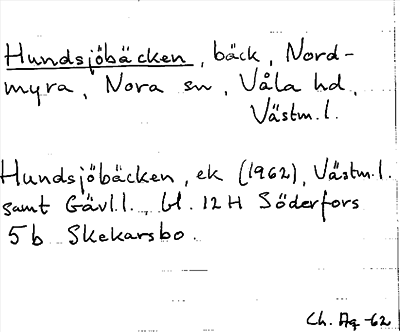 Hundsjöbäcken, bäck, Nord-
myra, Nora sn, Våla hd,
Västm.l.
Hundsjöbäcken, ek (1962), Västm.l.
samt Gävl.l., bl. 12 H Söderfors
5 b Skekarsbo.
Ch. Ag -62